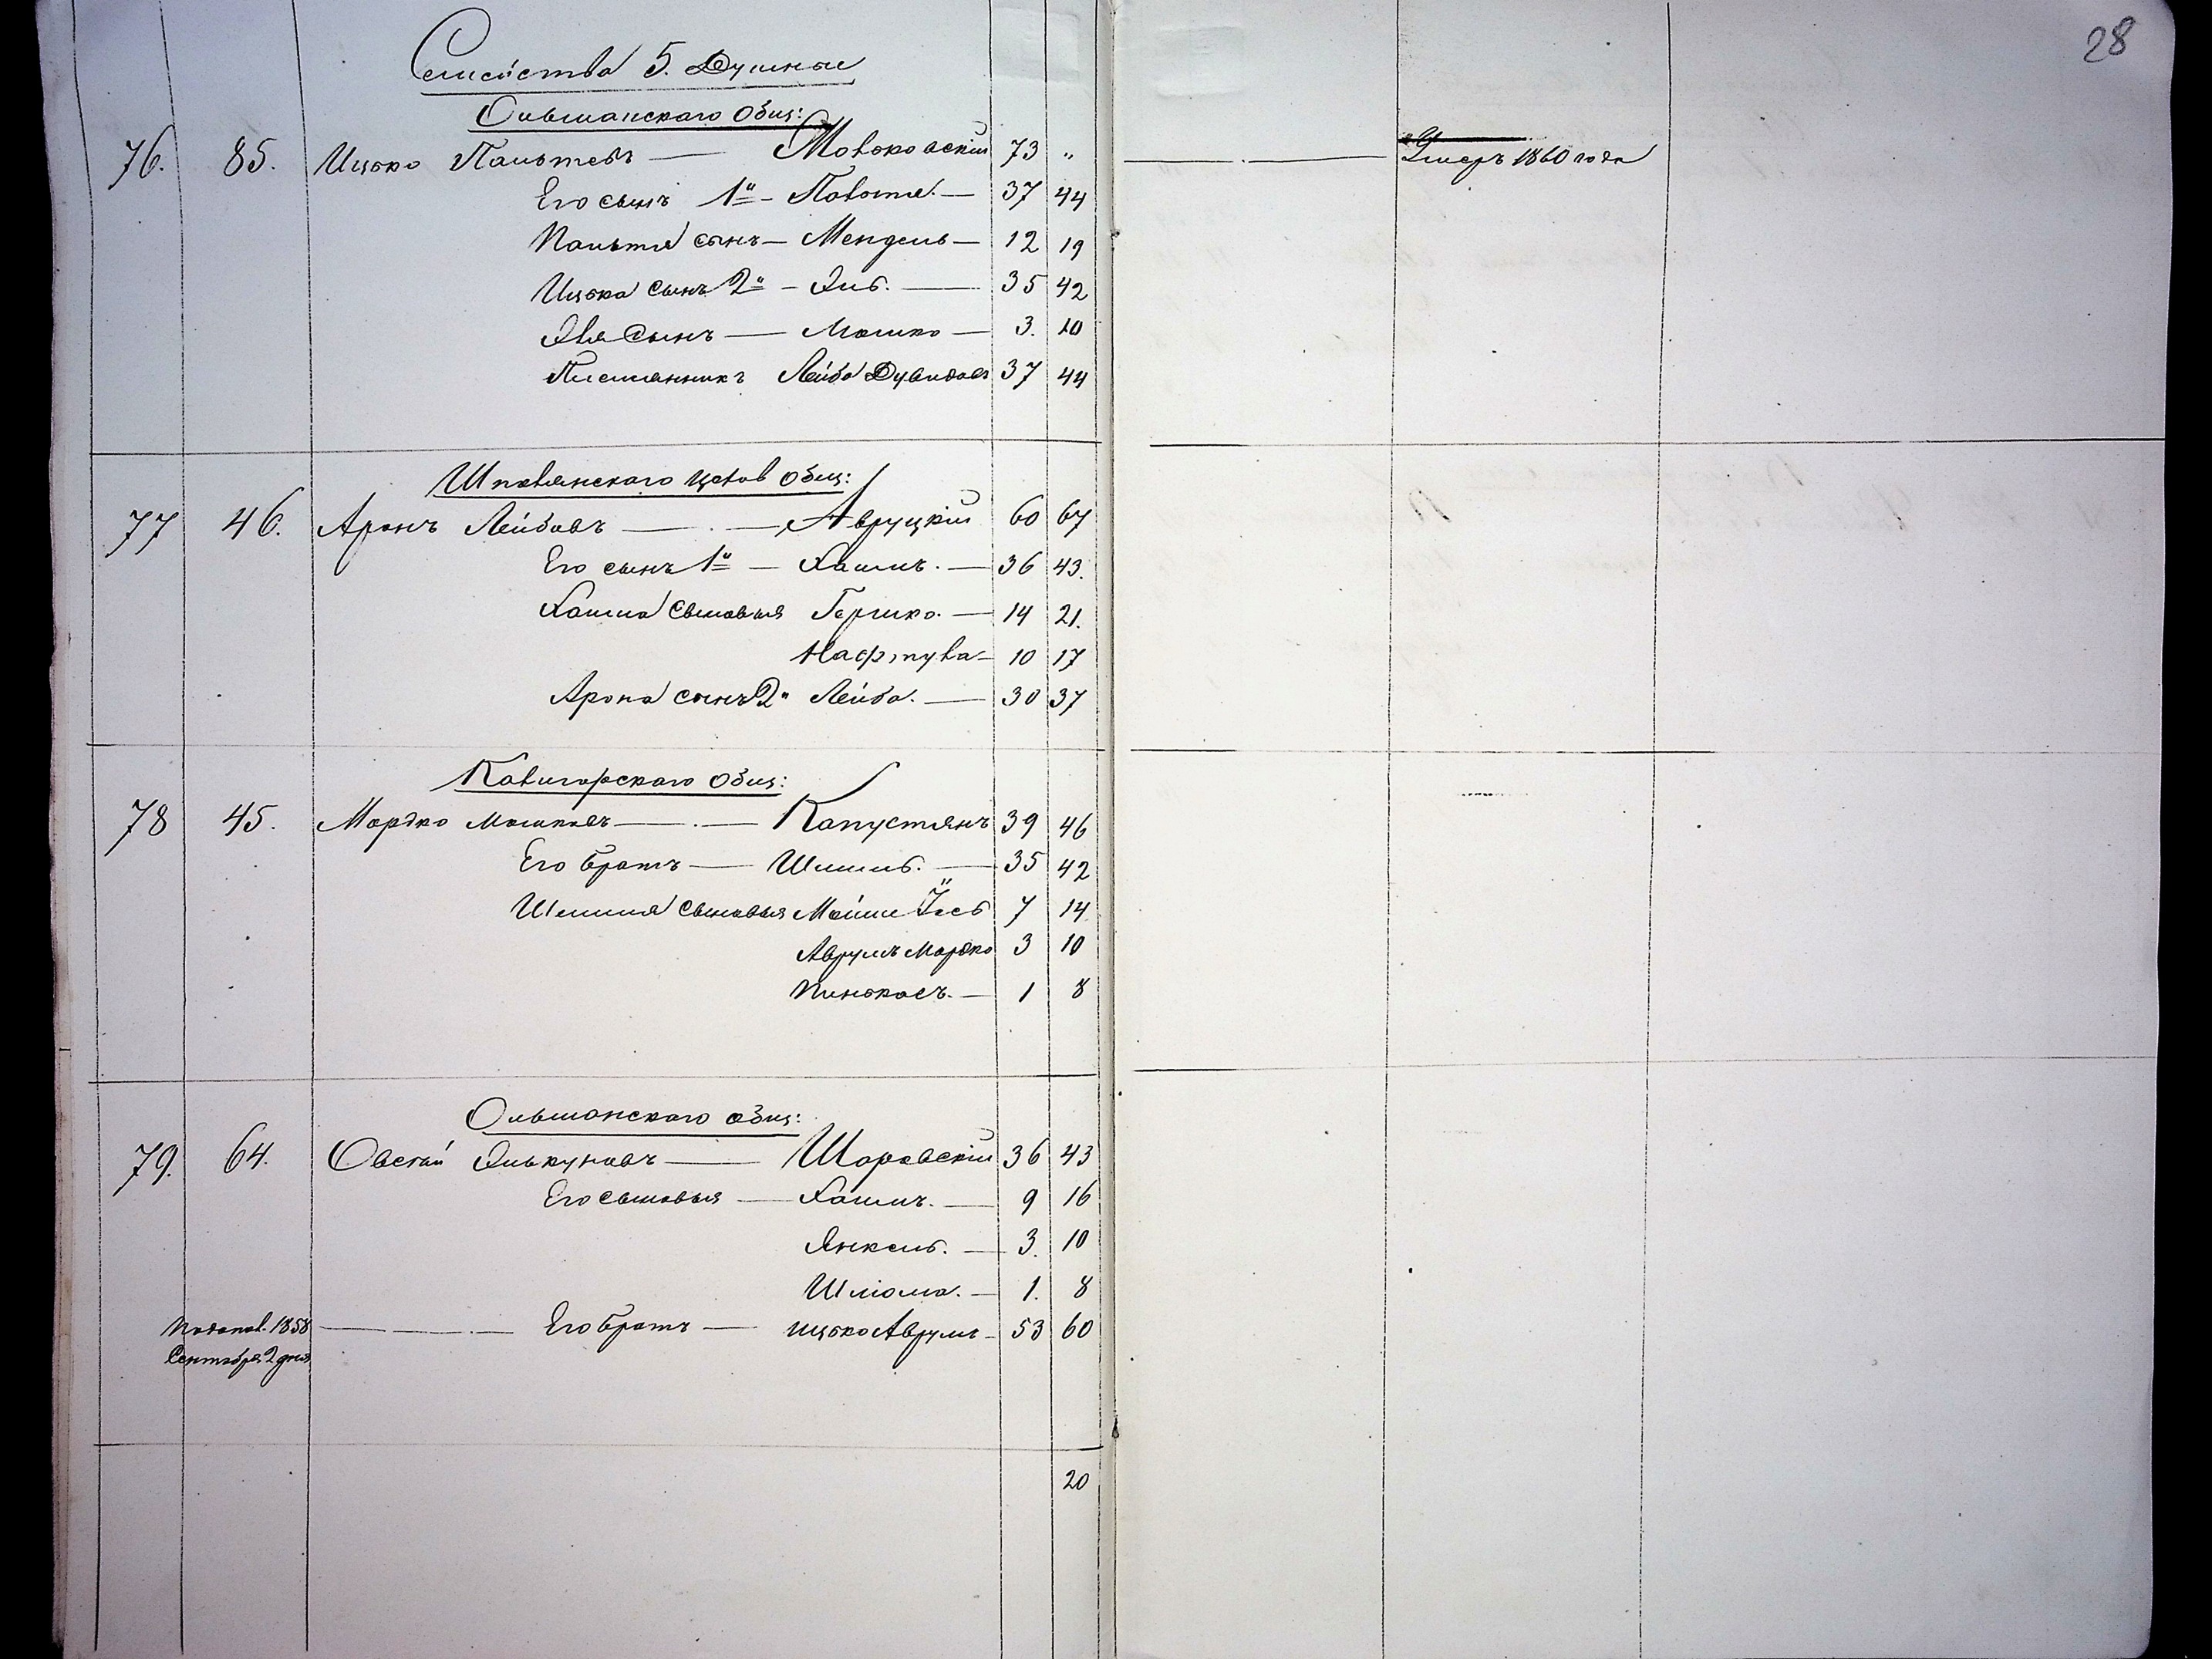 28
Семейства 5. Душные
Ольшанскаго Общ:
76. 85. Ицько Пальтевъ — Мовьковскій 73 „ — Умеръ 1860 года
Его сынъ 1й – Пальтя. — 37 44
Пальтя сынъ — Мендель — 12 19
Ицька сынъ 2й – Эль. — 35 42
Эля Сынъ — Мошко — 3. 10
Племянникъ Лейба Дувидовъ 37 44
Шполянскаго Общ:
77 46. Аронъ Лейбовъ — Авруцкій 60 67
Его сынъ 1й — Хаимъ. — 36 43.
Хаима сыновья Гершко. — 14 21.
Нафтула – 10 17
Арона сынъ 2й Лейба. — 30 37
Кальигорскаго Общ:
78 45. Мордко Мошковъ — Капустянъ 39 46
Его братъ — Шмиль. — 35 42
Шмиля сыновья Мойше Іось 7 14
Аврумъ Мордко 3 10
Пинькасъ. — 1 8
Ольшанскаго общ:
79. 64. Овсей Элькуновъ — Шаровскій 36 43
Его сыновья — Хаимъ. — 9 16
Янкель. — 3. 10
Шліома. — 1. 8
1858 — Его братъ — Ицько Аврумъ – 53 60
Сентября 2 дня
20